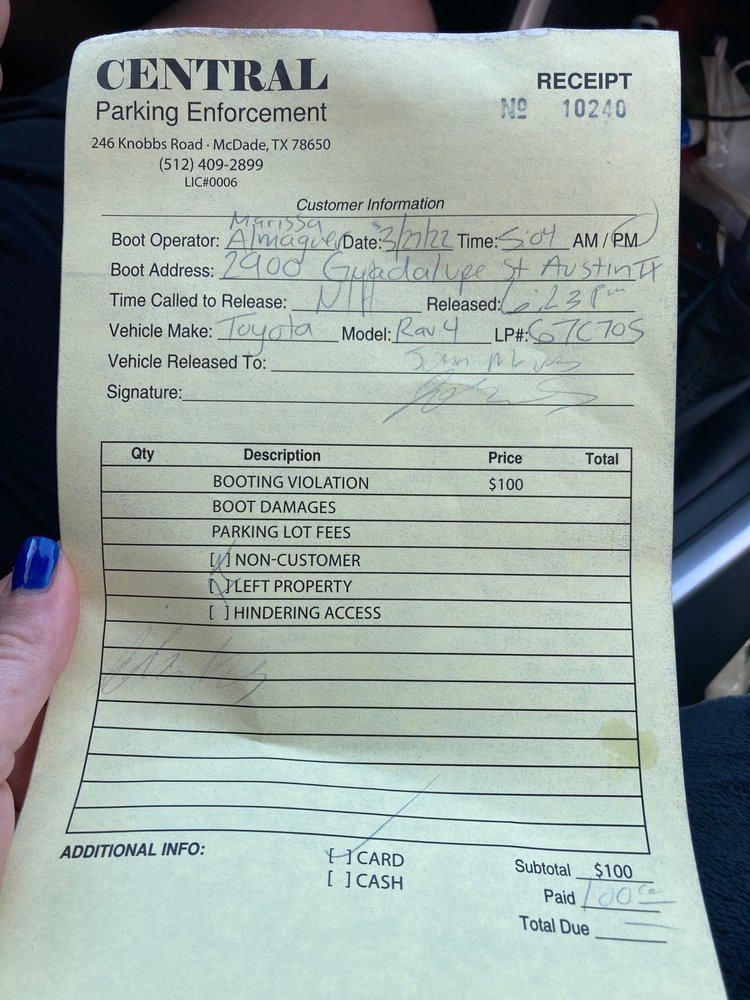 CENTRAL
Parking Enforcement
RECEIPT
Nº 10240
246 Knobbs Road · McDade, TX 78650
(512) 409-2899
LIC#0006
Customer Information
Boot Operator: Marissa Almaguer Date: 3/27/22 Time: 5:04 AM / PM
Boot Address: 2900 Guadalupe St Austin TX
Time Called to Release: Released: 6:23 pm
Vehicle Make: Toyota Model: Rav 4 LP#:
Vehicle Released To:
Signature:
Qty Description Price Total
BOOTING VIOLATION $100
BOOT DAMAGES
PARKING LOT FEES
[ ] NON-CUSTOMER
[ ] LEFT PROPERTY
[ ] HINDERING ACCESS
ADDITIONAL INFO:
[ ] CARD
[ ] CASH
Subtotal $100
Paid 100
Total Due —